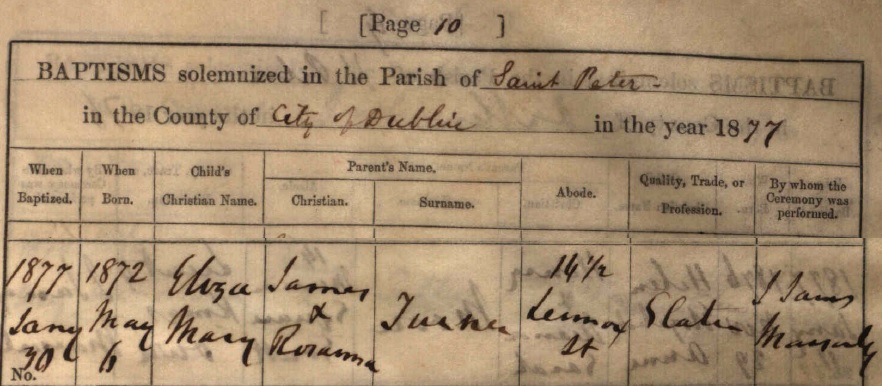 [Page 10 ]
BAPTISMS solemnized in the Parish of Saint Peter
in the County of City of Dublin in the year 1877
When Baptized. When Born. Child's Christian Name. Parent's Name. Christian. Surname. Abode. Quality, Trade, or Profession. By whom the Ceremony was performed.
1877 Jany 30 1872 May 6 Eliza Mary James & Rosanna Turner 14½ Lennox St Slater
No.